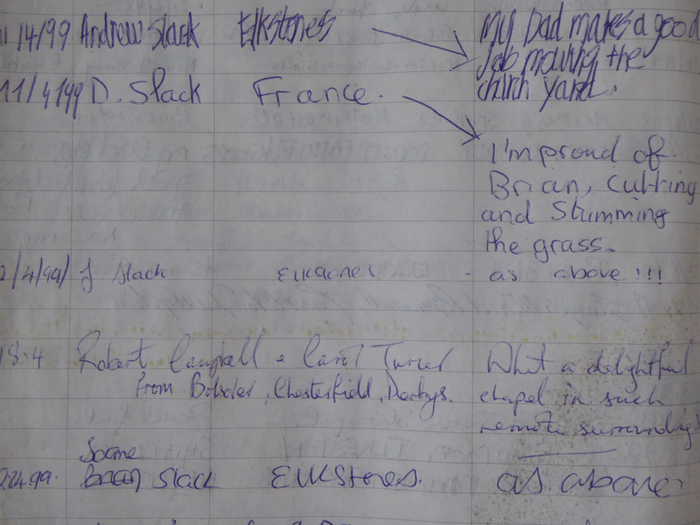 11/4/99 Andrew Slack Elkstones My Dad makes a good
Job mowing the
chirch yard.
11/4/99 D. Slack France.
I'm proud of
Brian, Cutting
and Stumming
the grass.
2/4/99 J Slack Elkstones - as above!!!
18.4 Robert Campbell & Carol Turner What a delightful
from Bolsover, Chesterfield, Derbys. chapel in such
remote surroundings
Slack Elkstones. as above